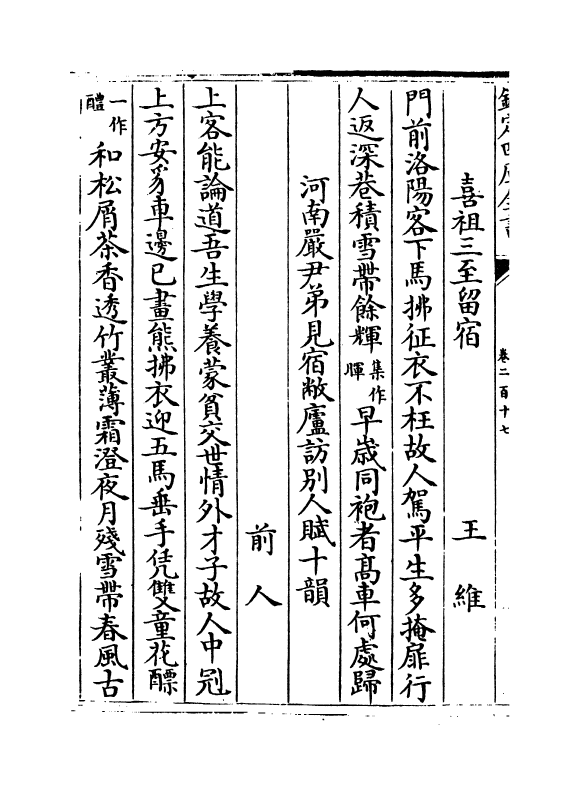 欽定四庫全書
卷二百十七
喜祖三至留宿 王維
門前洛陽客下馬拂征衣不枉故人駕平生多掩扉行
人返深巷積雪帶餘輝集作暉早歲同袍者髙車何處歸
河南嚴尹弟見宿敝廬訪別人賦十韻
前人
上客能論道吾生學養蒙貧交世情外才子故人中冠
上方安豸車邊已畫熊拂衣迎五馬垂手凭雙童花醥
一作醴和松屑茶香透竹叢薄霜澄夜月殘雪帶春風古